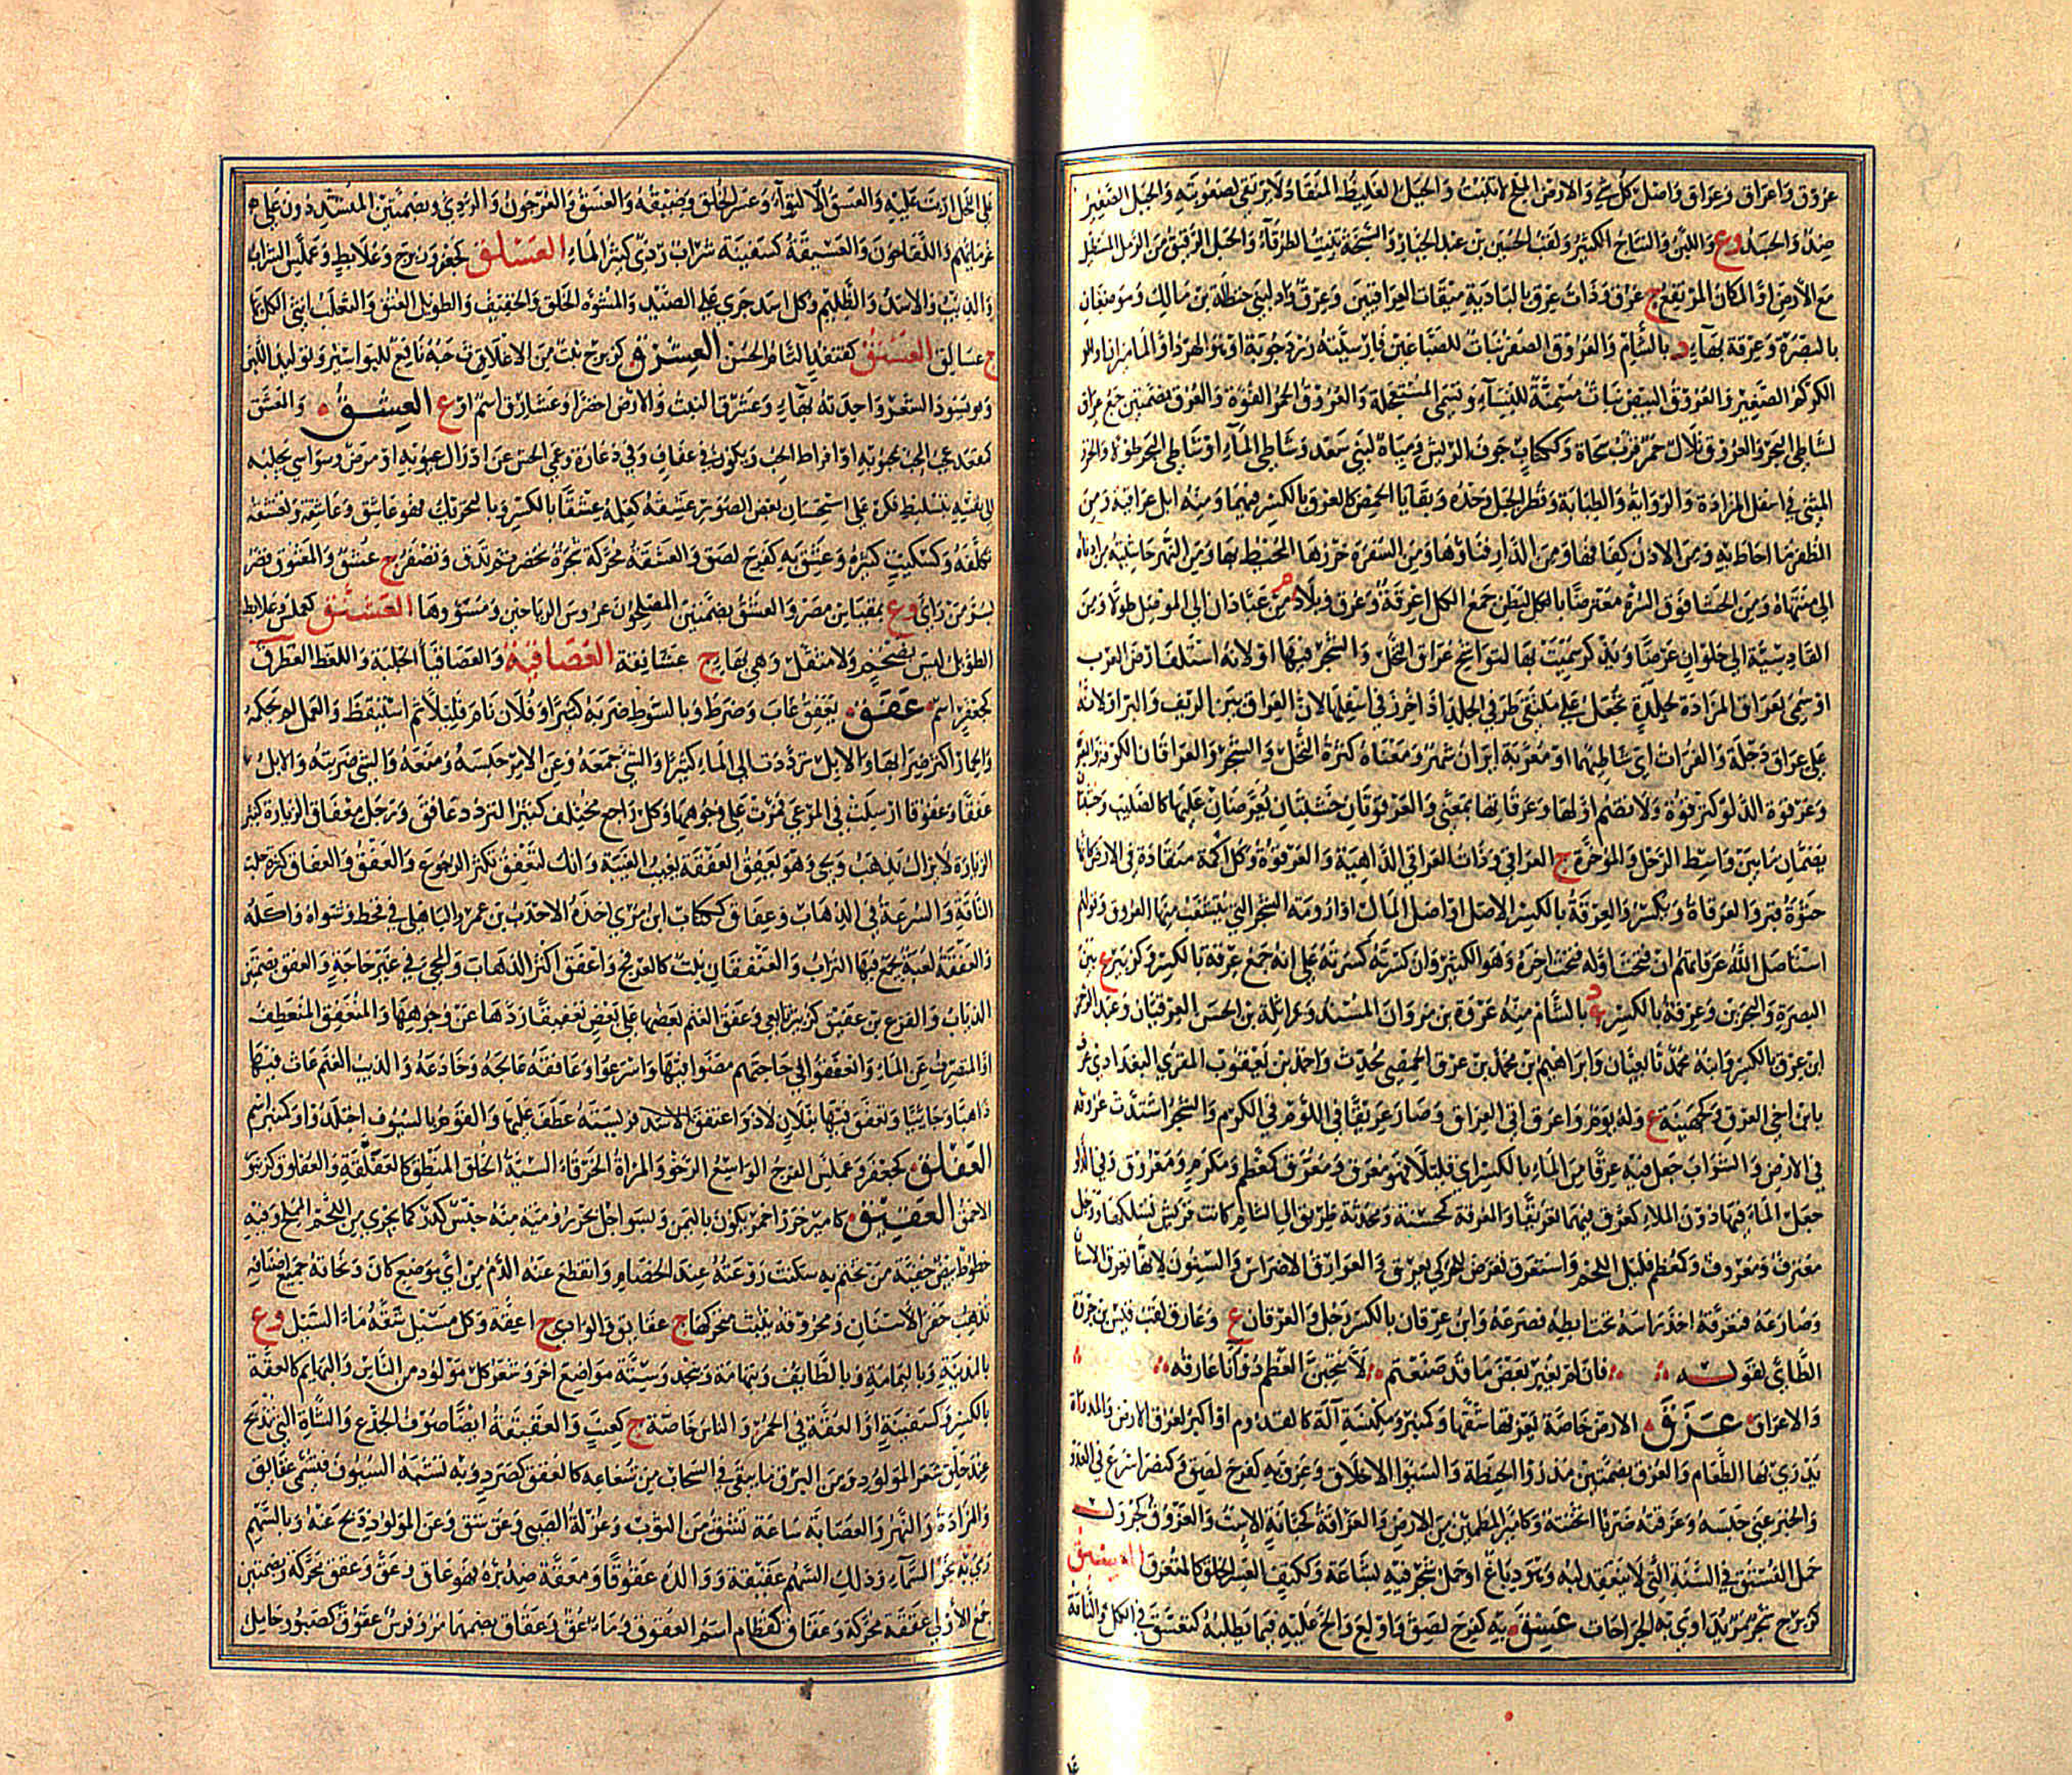 عُرُوق وَاَعراق وَعِراق وَاصل كُلّ شئ وَالارض الملح لا تنبت وَالجبل الغليظ المنقاد لا يرتقى لصعوبته وَالجبل الصغير
ضد وَالجسد وع وَاللبن وَالنتاج الكثير وَلقب الحسين بن عبد الجبار وَالسبخة تنبت الطرفآء وَالحبل الرقيق من الرمل المستطيل
مع الارض او المكان المرتفع ج عروق وَذات عرق بالبادية ميقات العراقيين وَعرق واد لبنى حنظلة بن مالك وَموضعان
بالبصرة وَعرقة بهآء د بالشام وَالعروق الصفر نبات للصباغين فارسيته زرد جوبه او هو الهرد او الماميران او
الكركم الصغير وَالعروق البيض نبات مسمنة للنسآء وتسمى المستعجلة وَالعروق الحمر الفوة وَالعرق بضمتين جمع عراق
لشاطئ البحر وَالعروق تلال حمر قرب سجا وَككتاب جوف الريش وَمياه لبنى سعد وَشاطئ المآء او شاطئ البحر طولا وَالخرز
المثنى فى اسفل المزادة وَالراوية وَالطبابة وَقطر الجبل وحده وَبقايا الحمض كالعرق بالكسر فيهما وَمنه ابل عراقية وَمن
الظفر ما احاط به وَمن الاذن كفافها وَمن الدار فناؤها وَمن السفرة خرزها المحيط بها وَمن النهر حاشيته من ادناه
الى منتهاه وَمن الحشا فوق السرة معترضا بالبطن جمع الكل اعرقة وَعرق وبلاد م من عبادان الى الموصل طولا وَمن
القادسية الى حلوان عرضا وَيذكر سميت بها لتواشج عراق النخل وَالشجر فيها او لانه استكف ارض العرب
او سمى بعراق المزادة لجلدة تجعل على ملتقى طرفى الجلد اذا خرز فى اسفلها لان العراق بين الريف وَالبر او لانه
على عراق دجلة وَالفرات اى شاطئهما او معربة ايران شهر وَمعناه كثرة النخل وَالشجر وَالعراقان الكوفة وَالبصرة
وَعرقوة الدلو كترقوة وَلا يضم اولها وَعرقاتها بمعنى وَالعرقوتان خشبتان تعرضان عليها كالصليب وَخشبتان
تضمان ما بين واسط الرحل وَالمؤخرة ج العراقى وَذات العراقى الداهية وَالعرقوة كل اكمة منقادة فى الارض كانها
جثوة قبر وَالعرقاة وَيكسر وَالعرقة بالكسر الاصل او اصل المال او ارومة الشجر التى تتشعب منها العروق وَقولهم
استأصل الله عرقاتهم ان فتحت اوله فتحت اخره وَهو الكثير وَان كسرته كسرته على انه جمع عرقة بالكسر وَكزبير ع بين
البصرة وَالبحرين وَعرقة بالكسر د بالشام منه عروة بن مروان المسند وَواثلة بن الحسن العرقيان وَعبد الرحمن
ابن عرق بالكسر وَابنه محمد تابعيان وَابراهيم بن محمد بن عرق الحمصى محدث وَاحمد بن يعقوب المقرى البغدادى عرف
بابن اخى العرق وَكجهينة ع وَله يوم وَاعرق اتى العراق وَصار عريقا فى اللؤم وَفى الكرم وَالشجر اشتدت عروقه
فى الارض وَالشراب جعل فيه عرقا من الماء بالكسر اى قليلا فهو معرق وَمعرق كمعظم وَمكرم وَمعروق وَفى الدلو
جعل المآء فيها دون الملء كعرق فيهما تعريقا وَالمعرقة كمحسنة وَمحدثة طريق الى الشام كانت قريش تسلكها وَرجل
معترق وَمعروق وَكمعظم قليل اللحم وَاستعرق تعرض للحر كى يعرق وَالعوارق الاضراس وَالسنون لانها تعرق الانسان
وَصارعه فتعرقه اخذ رأسه تحت ابطه فصرعه وَابن عرقان بالكسر رجل وَالعرقان ع وَعارق لقب قيس بن جروة
الطائى لقوله فان لم يغير بعض ما قد صنعتم لانتحين العظم ذو انا عارقه
وَالاعراق عَزَقَ الارض خاصة يعزقها شقها وَكمنبر وَمكنسة آلة كالقدوم او اكبر لعزق الارض وَالمذراة
يذرى بها الطعام وَالعزق بضمتين مذروا الحنطة وَالسيئوا الاخلاق وَعزق به كفرح لصق وَكنصر اسرع فى العدو
وَالخبر عنى حبسه وَعزقته ضربا اثخنته وَكامير المطمئن من الارض وَالعزاقة كجبانة الاست وَالعزوق كجرول
حمل الفستق فى السنة التى لا ينعقد لبه وَهو دباغ او حمل شجر فيه بشاعة وَككتف العسر الخلق كالمتعزق العسبق
كزبرج شجر مر يداوى به الجراحات عَسِقَ به كفرح لصق وَاولع وَالح عليه فيما يطلبه كتعسق فى الكل وَالناقة
على الفحل اربت عليه وَالعسق الالتوآء وَعسر الخلق وَضيقه وَالغسق وَالعرجون الردئ وبضمتين المتشددون على
غرمائهم وَاللقاحون وَالعسيقة كسفينة شراب ردئ كثير المآء العسلق كجعفر وَزبرج وَعلابط وَعملس السراب
وَالذئب وَالاسد وَالظليم وَكل اسد جرى على الصيد وَالمشوه الخلق وَالخفيف وَالطويل العنق وَالثعلب انثى الكل بهآء
ج عسالق العسنق كقنفذ التام الحسن العِشرِق كزبرج نبت من الاغلاق حبه نافع للبواسير وَتوليد اللبن
وَيسود الشعر واحدته بهآء وَعشرق النبت وَالارض اخضرا وَعشارق اسم او ع العِشقُ وَالمعشق
كمقعد عجب المحب بمحبوبه او افراط الحب وَيكون فى عفاف وَفى دعارة وَعمى الحس عن ادراك عيوبه او مرض وسواسى يجلبه
الى نفسه بتسليط فكره على استحسان بعض الصور عشقه كعلمه عشقا بالكسر وَبالتحريك فهو عاشق وَعاشقة وَتعشقه
تكلفه وَكسكيت كثيره وَعشق به كفرح لصق وَالعشقة محركة شجرة تخضر ثم تدق وَتصفر ج عشق وَالمعشوق قصر
بسر من رأى وع بمقياس مصر وَالعشق بضمتين المصلحون غروس الرياحين وَمسووها العشنق كعملس وَعلابط
الطويل ليس بضخم وَلا مثقل وَهى بهاء ج عشانقة العصاقية وَالعصاقيا الجلبة وَاللغط العطرق
كجعفر اسم عَفَقَ يعفق غاب وَضرط وَبالسوط ضربه كثيرا وَفلان نام قليلا ثم استيقظ وَالعمل لم يحكمه
وَالحمار اكثر ضرابها وَالابل ترددت الى المآء كثيرا وَالشئ جمعه وَعن الامر حبسه وَمنعه وَالشئ ضربته وَالابل
عفقا وَعفوقا ارسلت فى المرعى فمرت على وجوهها وَكل راجع مختلف كثير التردد عافق وَرجل معفاق الزيارة كثير
الزيارة لا يزال يذهب وَيجئ وَهو يعفق العفقة يغيب الغيبة وَانك لتعفق تكثر الرجوع وَالعفق وَالعفاق كثرة حلب
الناقة وَالسرعة فى الذهاب وَعفاق ككتاب ابن مرى اخذه الاحدب بن عمرو الباهلى فى قحط وَشواه وَاكله
وَالعفقة لعبة يجمع فيها التراب وَالعنفقان نبت كالعرفج وَاعفق اكثر الذهاب وَالمجئ فى غير حاجة وَالعفق بضمتين
الذئاب وَالقرع بن عفيق كزبير تابعى وَعفق الغنم بعضها على بعض تعفيقا ردها عن وجوهها وَالمنعفق المنعطف
او المتصرف عن المآء وَانعفقوا فى حاجتهم مضوا فيها وَاسرعوا وَعافقه عالجه وَخادعه وَالذئب الغنم عاث فيها
ذاهبا وَجائيا وَتعفق فيها بفلان لاذ وَاعتفق الاسد فريسته عطف عليها وَالقوم بالسيوف اجتلدوا وَكمنبر اسم
العفلق كجعفر وَعملس الفرج الواسع الرخو وَالمراة الخرقاء السيئة الخلق المنطق كالعفلقة وَالعفلوق كزنبور
الاحمق العَقِيق كامير خرز احمر يكون باليمن وَبسواحل بحر رومية منه جنس كدر كما يجرى من اللحم المملح وَفيه
خطوط بيض خفية من تختم به سكنت روعته عند الخصام وَانقطع عنه الدم من اى موضع كان وَنحاتة جميع اصنافه
تذهب حفر الاسنان وَمحروقه يثبت متحركها ج عقائق وَالوادى ج اعقة وَكل مسيل شقه مآء السيل وع
بالمدينة وَباليمامة وَبالطائف وَبتهامة وَبنجد وَستة مواضع اخر وَشعر كل مولود من الناس وَالبهائم كالعقة
بالكسر وَكسفينة او العقة فى الحمر وَالناس خاصة ج كعنب وَالعقيقة ايضا صوف الجذع وَالشاة التى تذبح
عند حلق شعر المولود وَمن البرق ما يبقى فى السحاب من شعاعه كالعقق كصرد وَبه تشبه السيوف فتسمى عقائق
وَالمزادة وَالنهر وَالعصابة ساعة تشق من الثوب وَغرلة الصبى وَعق شق وَعن المولود ذبح عنه وَبالسهم
رمى به نحو السمآء وَذلك السهم عقيقة وَوالده عقوقا وَمعقة ضد بره فهو عاق وَعق وَعقق محركة وَبضمتين
جمع الاولى عققة محركة وَعقاق كقطام اسم العقوق وَمآء عق وَعقاق بضمهما مر وَفرس عقوق كصبور حايل